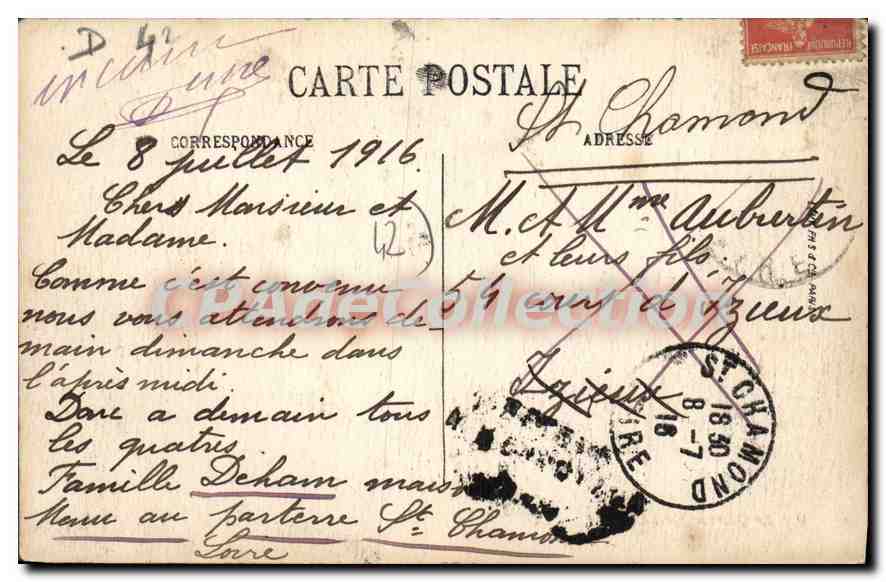 D 42
inconnu
CARTE POSTALE
CORRESPONDANCE
ADRESSE
REPUBLIQUE FRANÇAISE
Le 8 juillet 1916
Chers Monsieur et
Madame.
Comme c'est convenu
nous vous attendrons de-
main dimanche dans
l'après midi.
Donc a demain tous
les quatres
Famille Deham maison
Menu au parterre St Chamond
Loire
42
St Chamond
M. et Mme Aubertin
et leurs fils
54 cour d'Izieux
Izieux
ST CHAMOND
18 30
8 - 7
16
LOIRE
CPAdeCollection